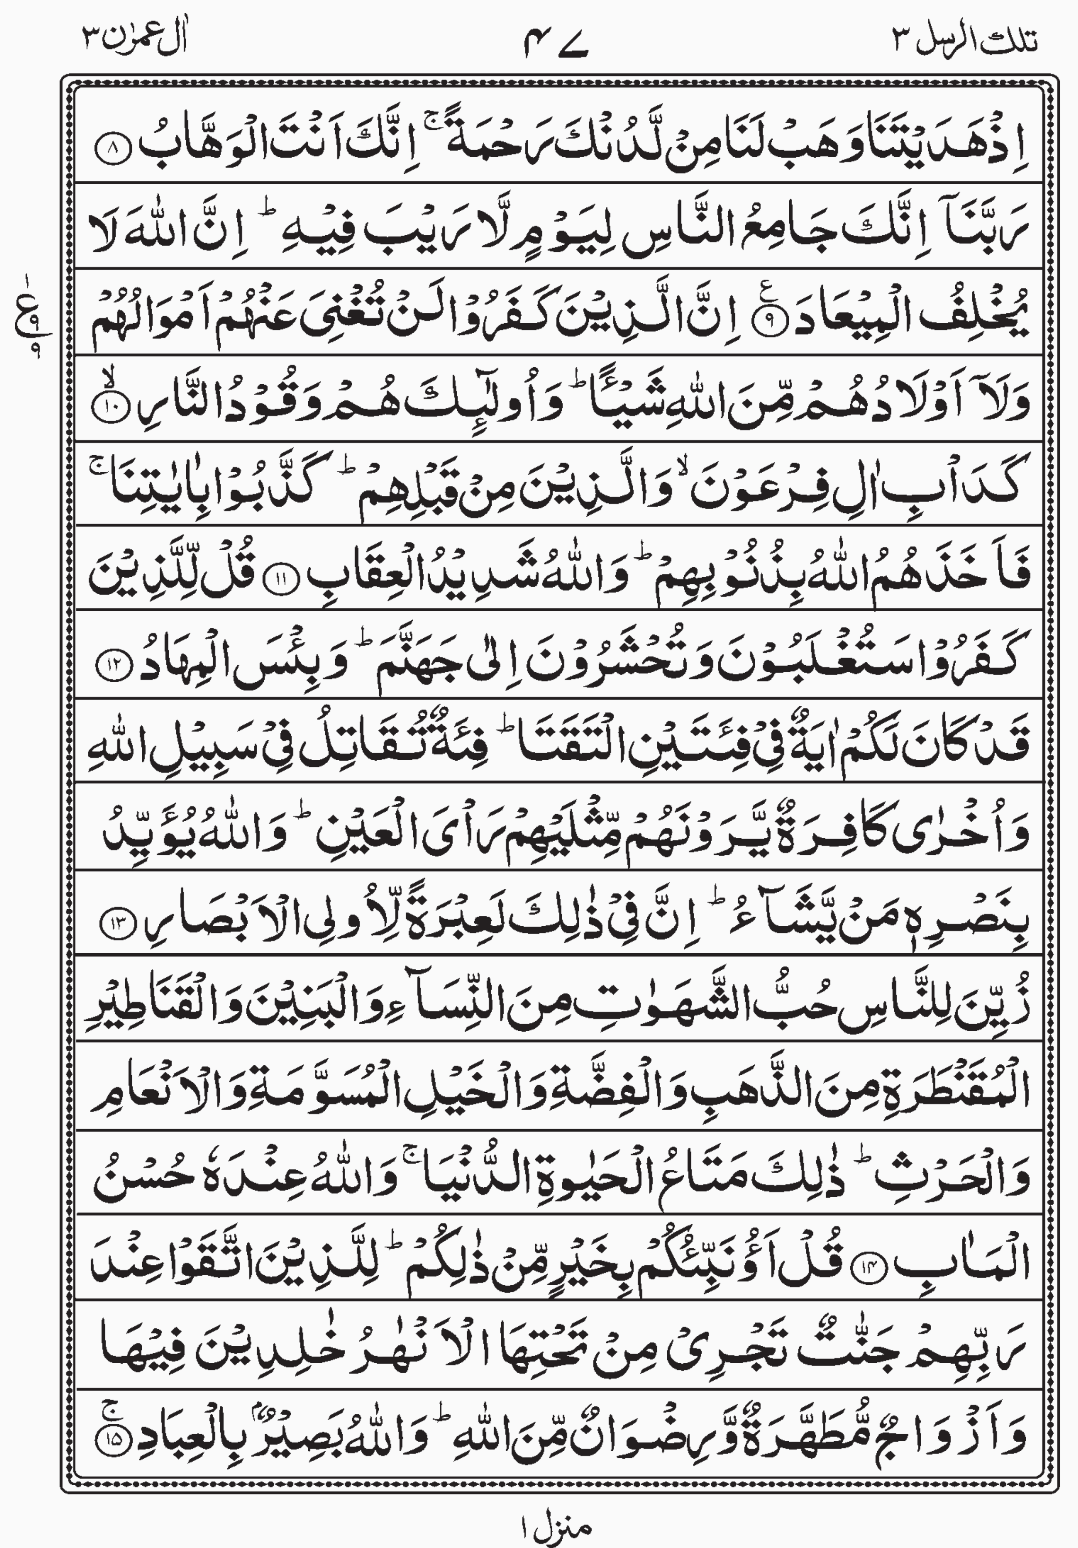 تلك الرسل ٣
٤٧
اٰل عمرٰن ٣
اِذْ هَدَيْتَنَا وَهَبْ لَنَا مِنْ لَّدُنْكَ رَحْمَةً ۚ اِنَّكَ اَنْتَ الْوَهَّابُ ۸
رَبَّنَآ اِنَّكَ جَامِعُ النَّاسِ لِيَوْمٍ لَّا رَيْبَ فِيْهِ ؕ اِنَّ اللّٰهَ لَا
يُخْلِفُ الْمِيْعَادَ ۹ ع اِنَّ الَّذِيْنَ كَفَرُوْا لَنْ تُغْنِىَ عَنْهُمْ اَمْوَالُهُمْ
١ ع ٩ ٩
وَلَآ اَوْلَادُهُمْ مِّنَ اللّٰهِ شَيْـًٔا ؕ وَاُولٰٓئِكَ هُمْ وَقُوْدُ النَّارِ ۙ ۱۰
كَدَاْبِ اٰلِ فِرْعَوْنَ ۙ وَالَّذِيْنَ مِنْ قَبْلِهِمْ ؕ كَذَّبُوْا بِاٰيٰتِنَا ۚ
فَاَخَذَهُمُ اللّٰهُ بِذُنُوْبِهِمْ ؕ وَاللّٰهُ شَدِيْدُ الْعِقَابِ ۱۱ قُلْ لِّلَّذِيْنَ
كَفَرُوْا سَتُغْلَبُوْنَ وَتُحْشَرُوْنَ اِلٰى جَهَنَّمَ ؕ وَبِئْسَ الْمِهَادُ ۱۲
قَدْ كَانَ لَكُمْ اٰيَةٌ فِىْ فِئَتَيْنِ الْتَقَتَا ؕ فِئَةٌ تُقَاتِلُ فِىْ سَبِيْلِ اللّٰهِ
وَاُخْرٰى كَافِرَةٌ يَّرَوْنَهُمْ مِّثْلَيْهِمْ رَاْىَ الْعَيْنِ ؕ وَاللّٰهُ يُؤَيِّدُ
بِنَصْرِهٖ مَنْ يَّشَآءُ ؕ اِنَّ فِىْ ذٰلِكَ لَعِبْرَةً لِّاُولِى الْاَبْصَارِ ۱۳
زُيِّنَ لِلنَّاسِ حُبُّ الشَّهَوٰتِ مِنَ النِّسَآءِ وَالْبَنِيْنَ وَالْقَنَاطِيْرِ
الْمُقَنْطَرَةِ مِنَ الذَّهَبِ وَالْفِضَّةِ وَالْخَيْلِ الْمُسَوَّمَةِ وَالْاَنْعَامِ
وَالْحَرْثِ ؕ ذٰلِكَ مَتَاعُ الْحَيٰوةِ الدُّنْيَا ۚ وَاللّٰهُ عِنْدَهٗ حُسْنُ
الْمَاٰبِ ۱۴ قُلْ اَؤُنَبِّئُكُمْ بِخَيْرٍ مِّنْ ذٰلِكُمْ ؕ لِلَّذِيْنَ اتَّقَوْا عِنْدَ
رَبِّهِمْ جَنّٰتٌ تَجْرِىْ مِنْ تَحْتِهَا الْاَنْهٰرُ خٰلِدِيْنَ فِيْهَا
وَاَزْوَاجٌ مُّطَهَّرَةٌ وَّرِضْوَانٌ مِّنَ اللّٰهِ ؕ وَاللّٰهُ بَصِيْرٌۢ بِالْعِبَادِ ۚ ۱۵
منزل ١